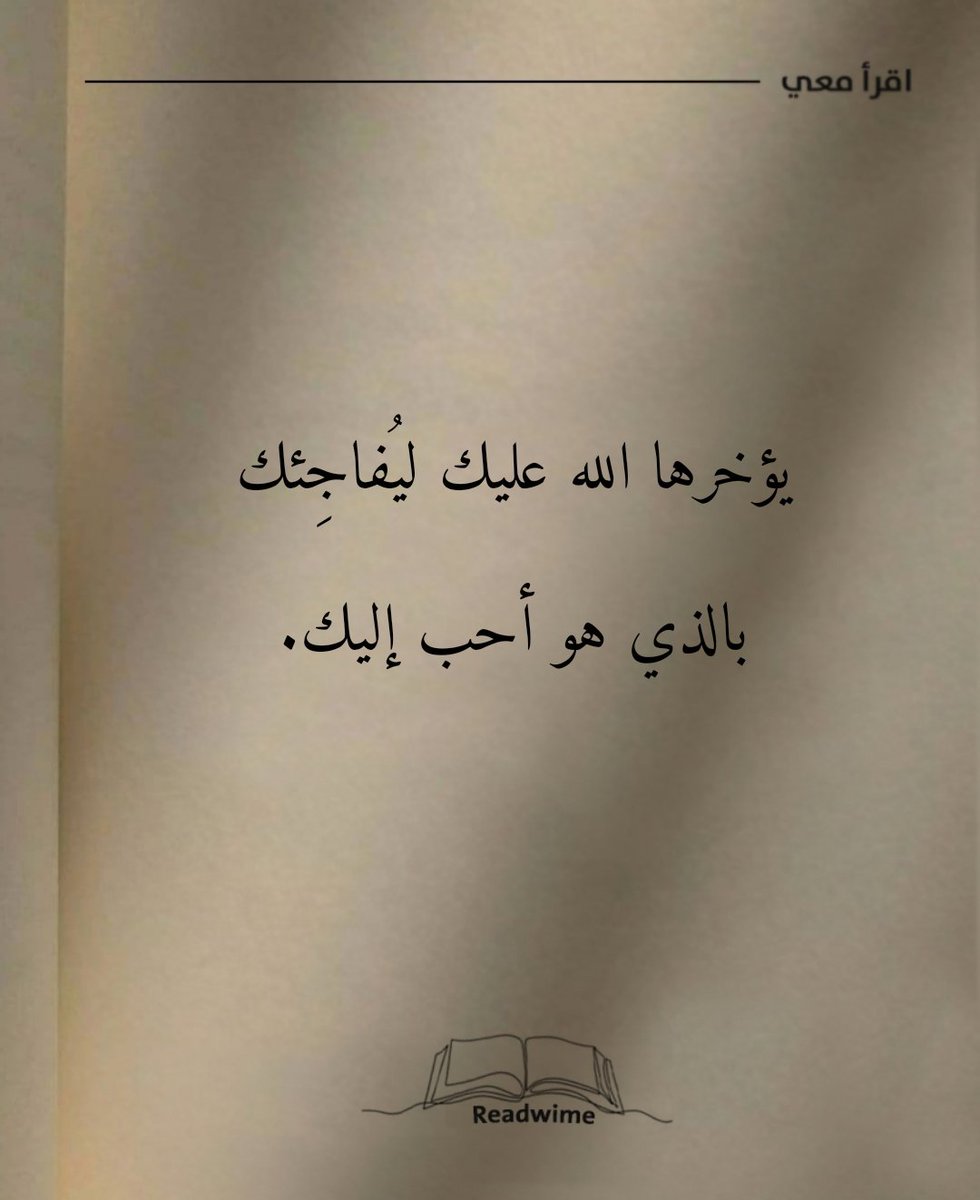 اقرأ معي
يؤخرها الله عليك ليُفاجِئك
بالذي هو أحب إليك.
Readwime